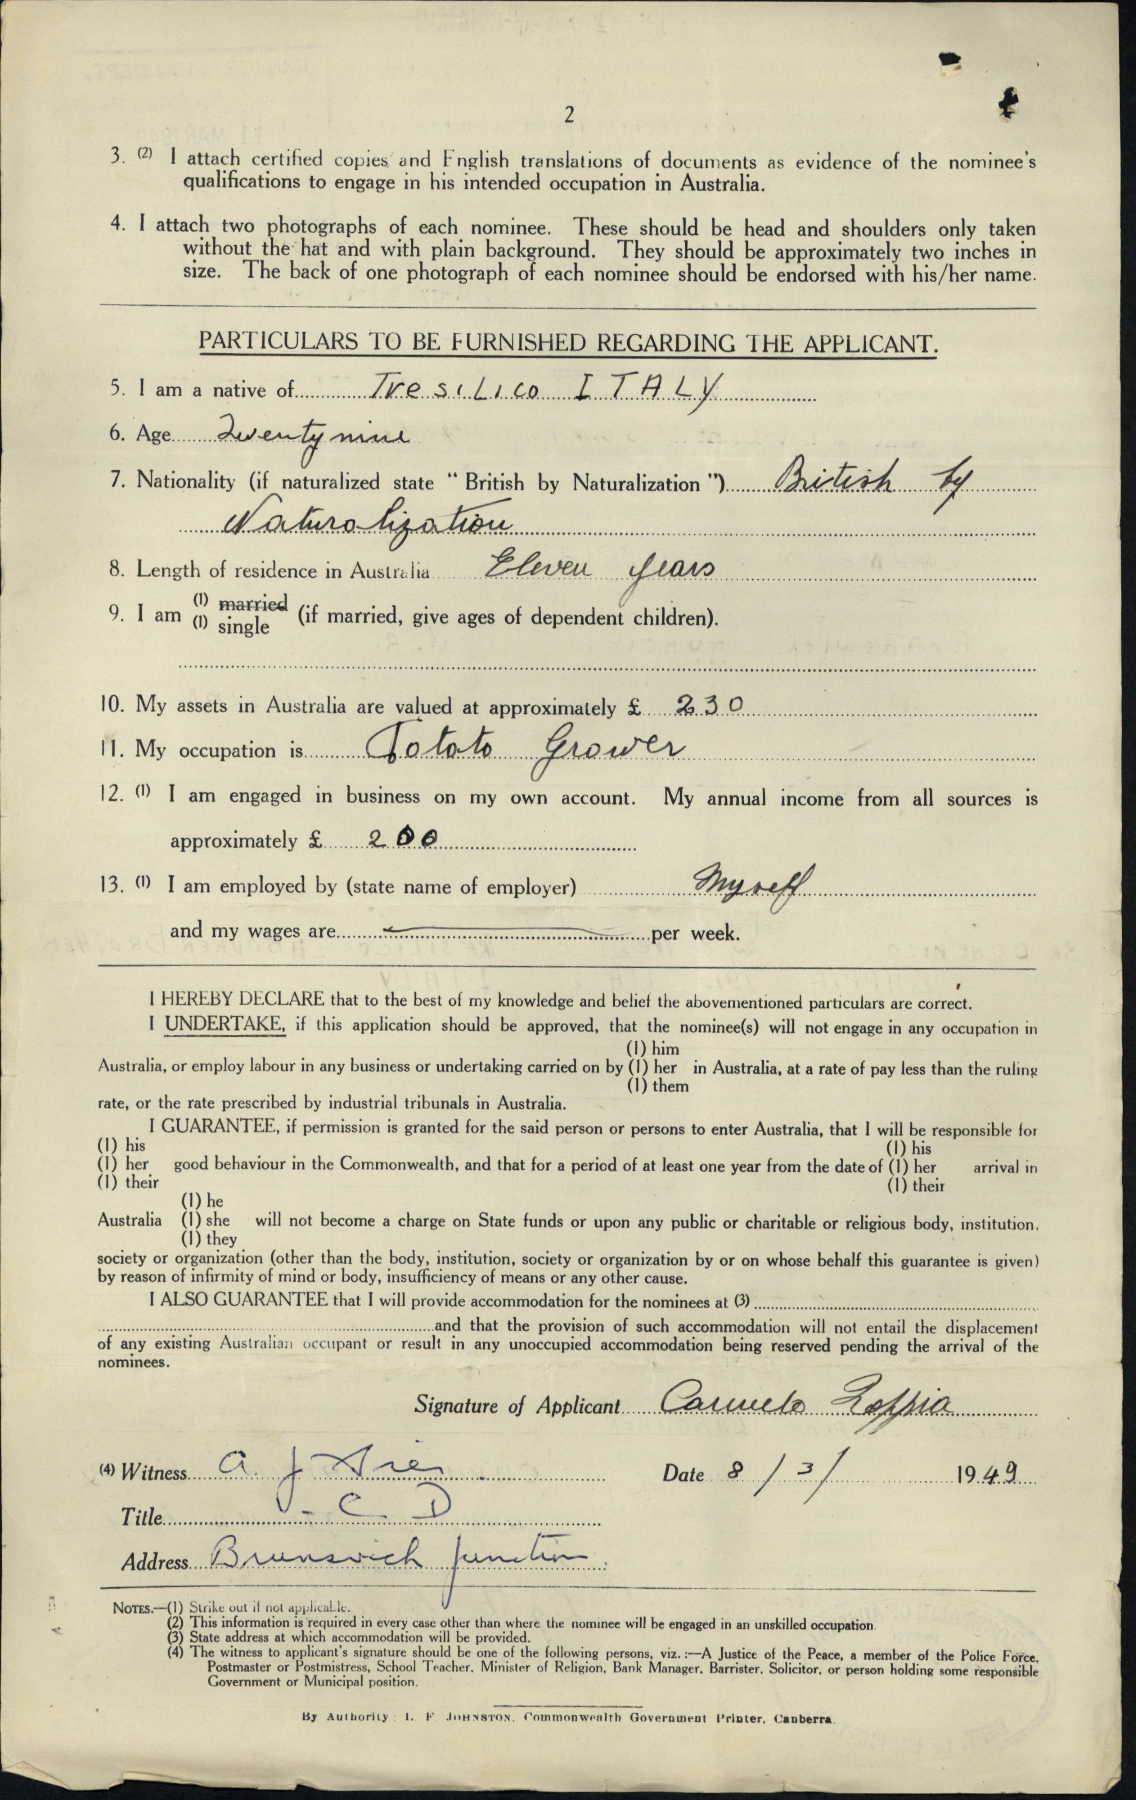 2
3. (2) I attach certified copies and English translations of documents as evidence of the nominee's
qualifications to engage in his intended occupation in Australia.
4. I attach two photographs of each nominee. These should be head and shoulders only taken
without the hat and with plain background. They should be approximately two inches in
size. The back of one photograph of each nominee should be endorsed with his/her name.
PARTICULARS TO BE FURNISHED REGARDING THE APPLICANT.
5. I am a native of Tresilico ITALY
6. Age Twenty nine
7. Nationality (if naturalized state "British by Naturalization") British by
Naturalization
8. Length of residence in Australia Eleven years
9. I am (1) married (1) single (if married, give ages of dependent children).
10. My assets in Australia are valued at approximately £ 230
11. My occupation is Potato Grower
12. (1) I am engaged in business on my own account. My annual income from all sources is
approximately £ 200
13. (1) I am employed by (state name of employer) Myself
and my wages are per week.
I HEREBY DECLARE that to the best of my knowledge and belief the abovementioned particulars are correct.
I UNDERTAKE, if this application should be approved, that the nominee(s) will not engage in any occupation in
(1) him
Australia, or employ labour in any business or undertaking carried on by (1) her in Australia, at a rate of pay less than the ruling
(1) them
rate, or the rate prescribed by industrial tribunals in Australia.
I GUARANTEE, if permission is granted for the said person or persons to enter Australia, that I will be responsible for
(1) his (1) his
(1) her good behaviour in the Commonwealth, and that for a period of at least one year from the date of (1) her arrival in
(1) their (1) their
(1) he
Australia (1) she will not become a charge on State funds or upon any public or charitable or religious body, institution,
(1) they
society or organization (other than the body, institution, society or organization by or on whose behalf this guarantee is given)
by reason of infirmity of mind or body, insufficiency of means or any other cause.
I ALSO GUARANTEE that I will provide accommodation for the nominees at (3)
and that the provision of such accommodation will not entail the displacement
of any existing Australian occupant or result in any unoccupied accommodation being reserved pending the arrival of the
nominees.
Signature of Applicant Carmelo Zoppia
(4) Witness A. J Date 8/3/ 1949
Title
Address Brunswick Junction
NOTES.—(1) Strike out if not applicable.
(2) This information is required in every case other than where the nominee will be engaged in an unskilled occupation.
(3) State address at which accommodation will be provided.
(4) The witness to applicant's signature should be one of the following persons, viz.:—A Justice of the Peace, a member of the Police Force,
Postmaster or Postmistress, School Teacher, Minister of Religion, Bank Manager, Barrister, Solicitor, or person holding some responsible
Government or Municipal position.
By Authority: L. F. JOHNSTON, Commonwealth Government Printer, Canberra.